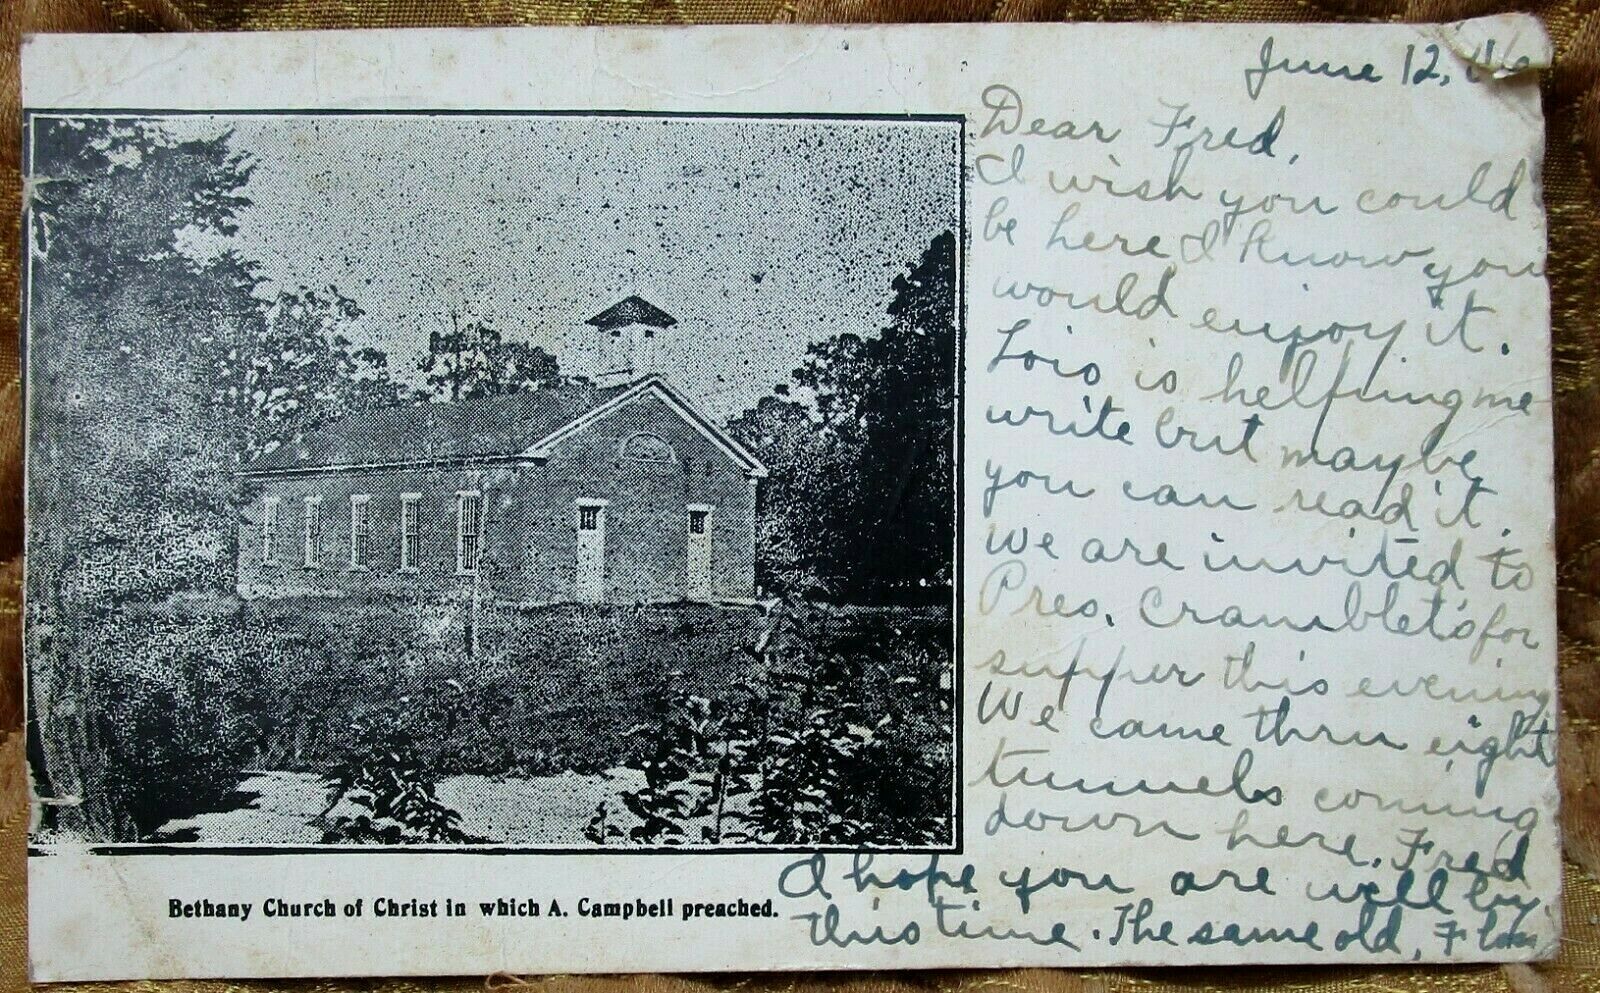 June 12,
Dear Fred,
I wish you could
be here I know you
would enjoy it.
Lois is helping me
write but maybe
you can read it.
We are invited to
Pres. Cramblet's for
supper this evening
We came thru eight
tunnels coming
down here. Fred
I hope you are well by
this time. The same old,
Bethany Church of Christ in which A. Campbell preached.